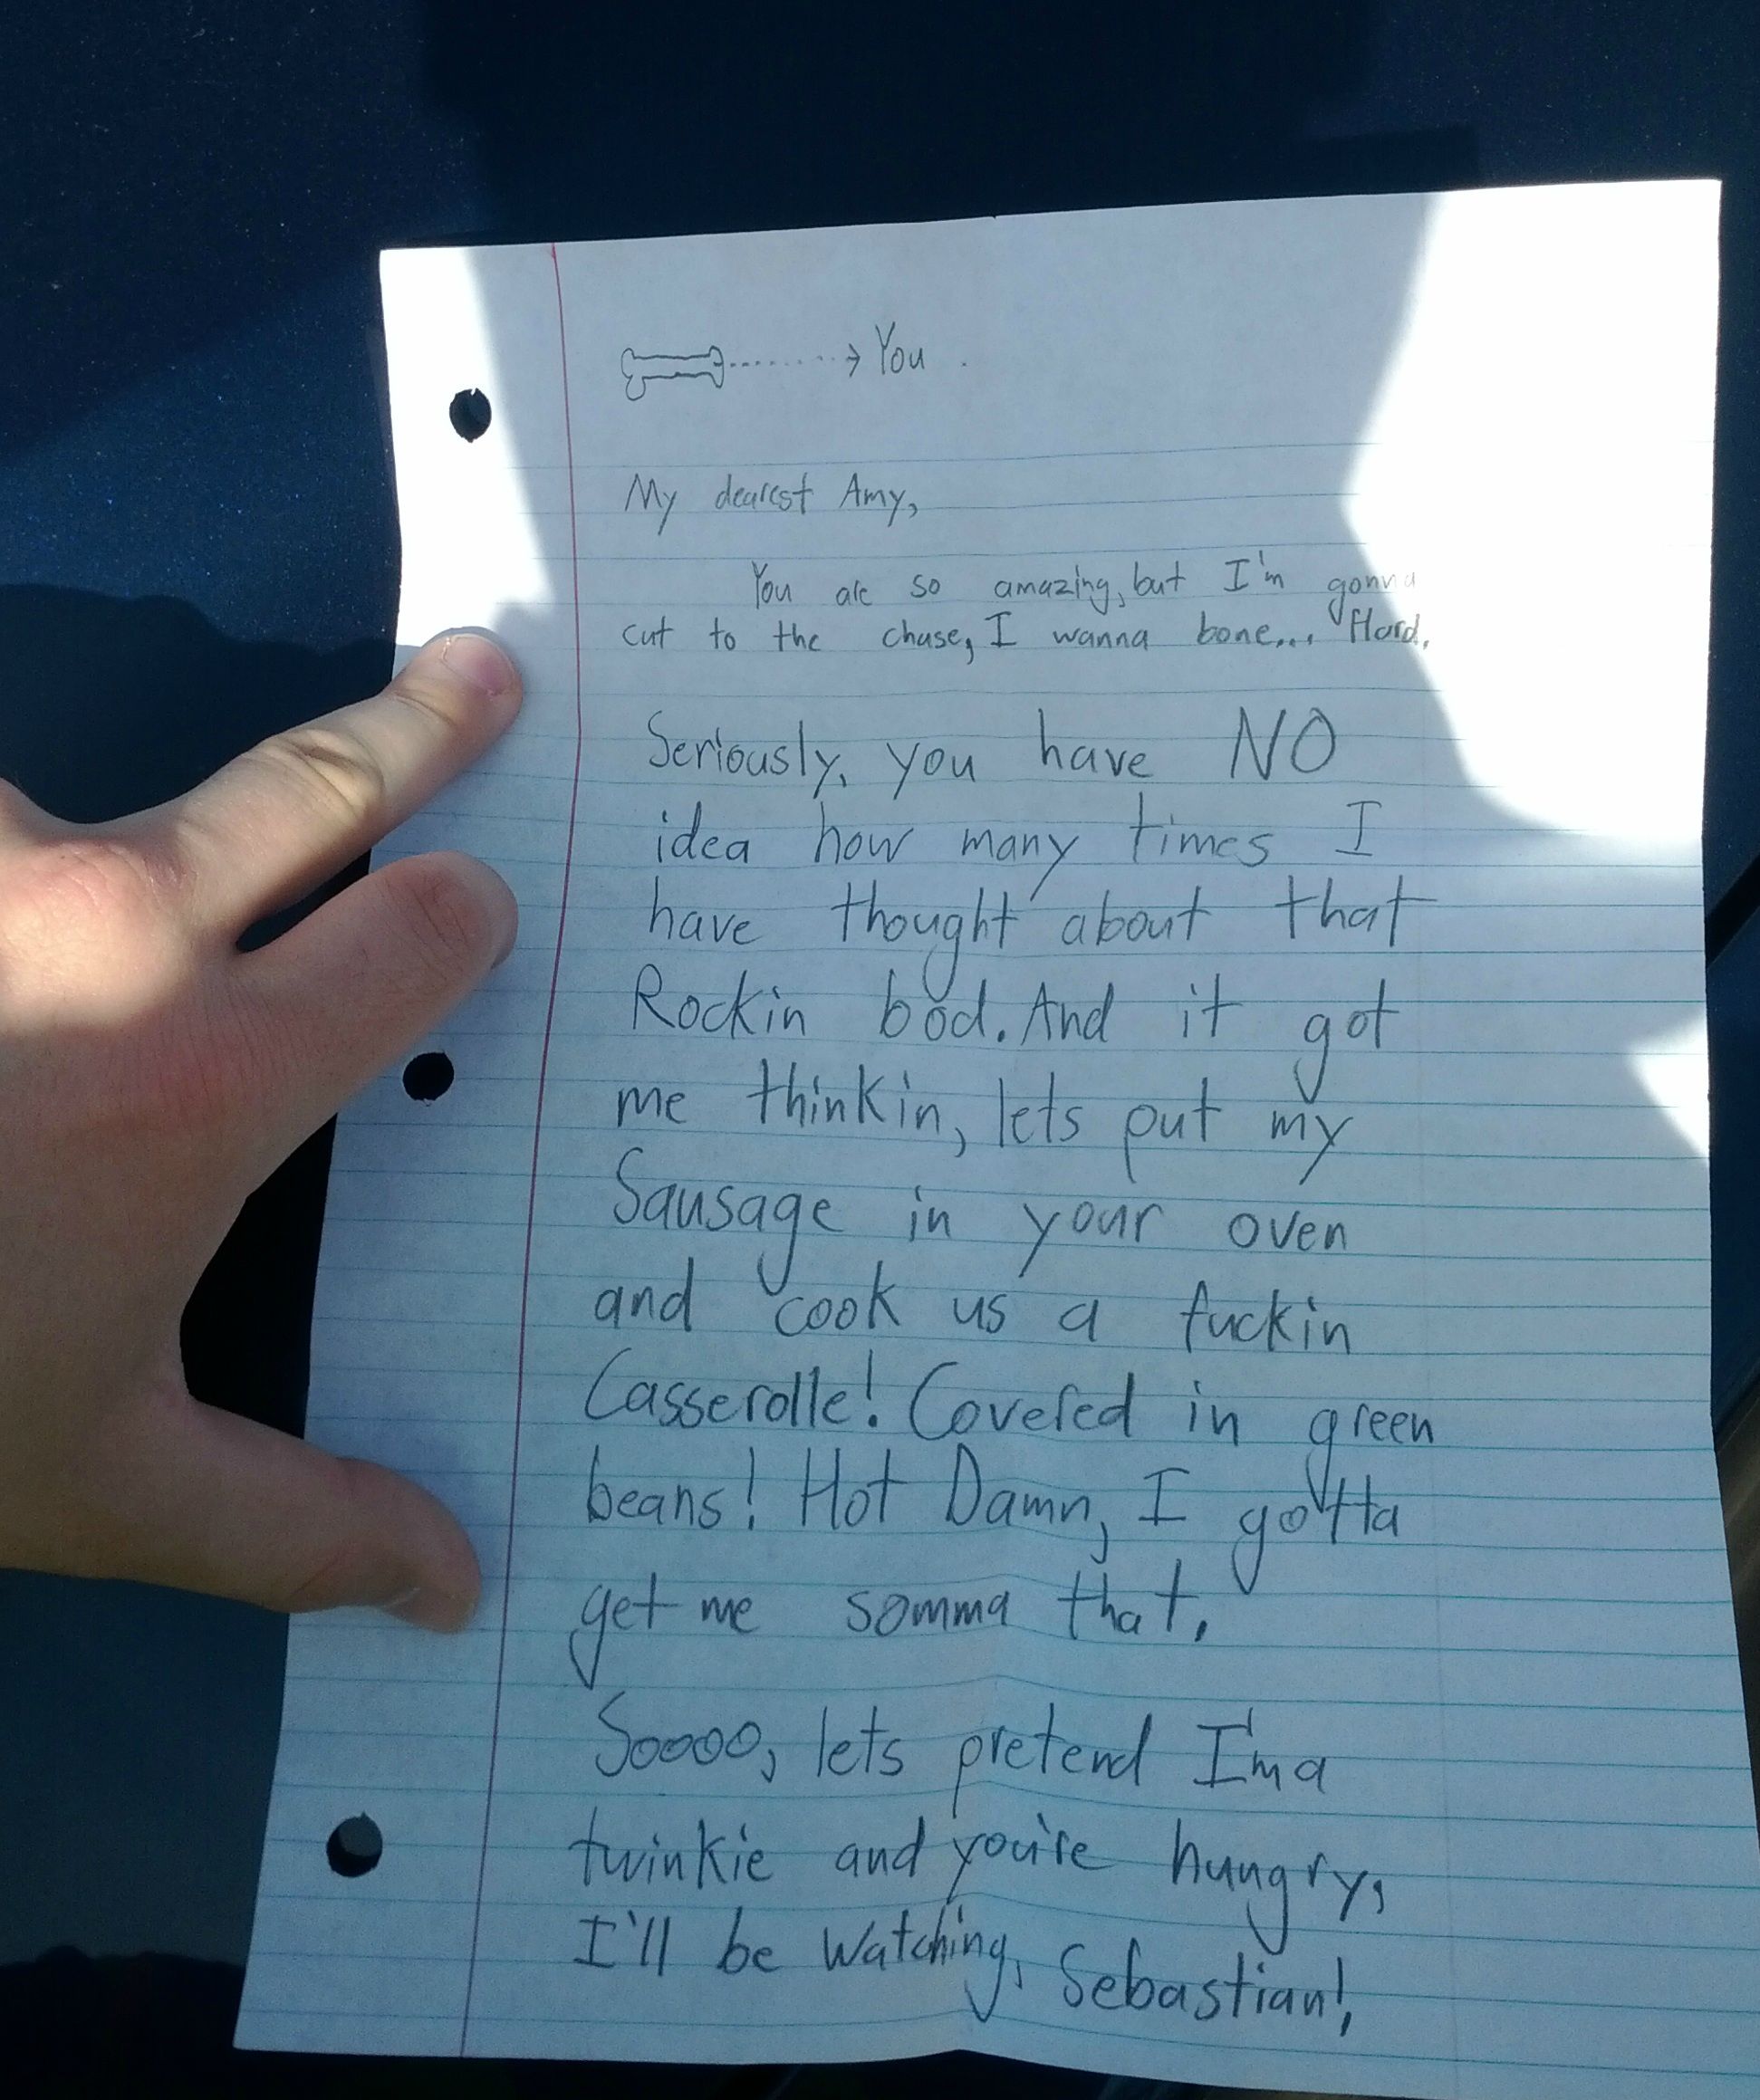 You
My dearest Amy,
You are so amazing, but I'm gonna
cut to the chase, I wanna bone... Hard.
Seriously, you have NO
idea how many times I
have thought about that
Rockin bod. And it got
me thinkin, lets put my
Sausage in your oven
and cook us a fuckin
Casserolle! Covered in green
beans! Hot Damn, I gotta
get me somma that.
Soooo, lets pretend I'm a
twinkie and you're hungry,
I'll be watching, Sebastian!,